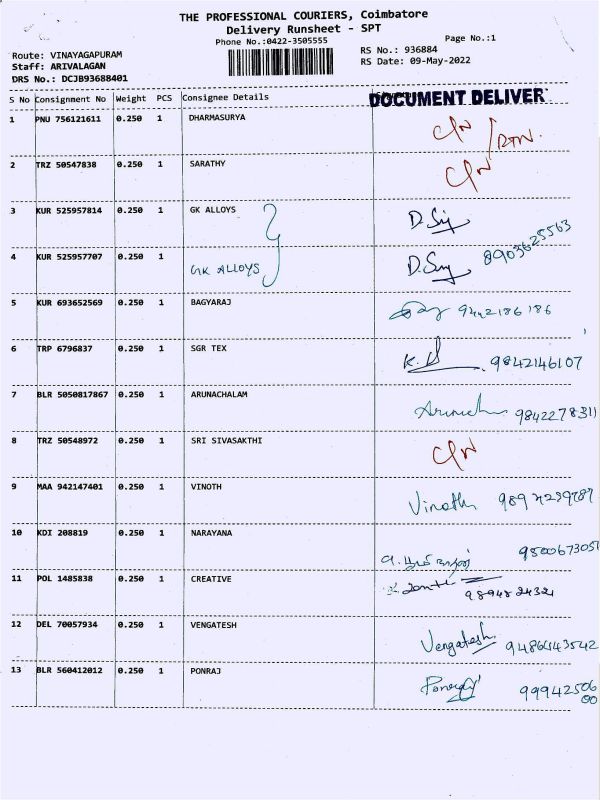 THE PROFESSIONAL COURIERS, Coimbatore
Delivery Runsheet - SPT
Phone No.:0422-3505555
Page No.:1
Route: VINAYAGAPURAM
RS No.: 936884
Staff: ARIVALAGAN
RS Date: 09-May-2022
DRS No.: DCJB93688401
S No Consignment No Weight PCS Consignee Details
DOCUMENT DELIVER
1 PNU 756121611 0.250 1 DHARMASURYA C/N / RTN.
2 TRZ 50547838 0.250 1 SARATHY C/N
3 KUR 525957814 0.250 1 GK ALLOYS
4 KUR 525957707 0.250 1 GK ALLOYS 8903625563
5 KUR 693652569 0.250 1 BAGYARAJ 9442186186
6 TRP 6796837 0.250 1 SGR TEX 9842146107
7 BLR 5050817867 0.250 1 ARUNACHALAM 9842278311
8 TRZ 50548972 0.250 1 SRI SIVASAKTHI C/N
9 MAA 942147401 0.250 1 VINOTH Vinoth
10 KDI 208819 0.250 1 NARAYANA 9500673051
11 POL 1485838 0.250 1 CREATIVE 9894824321
12 DEL 70057934 0.250 1 VENGATESH Vengatesh 9486443542
13 BLR 560412012 0.250 1 PONRAJ Ponraj 9994250600